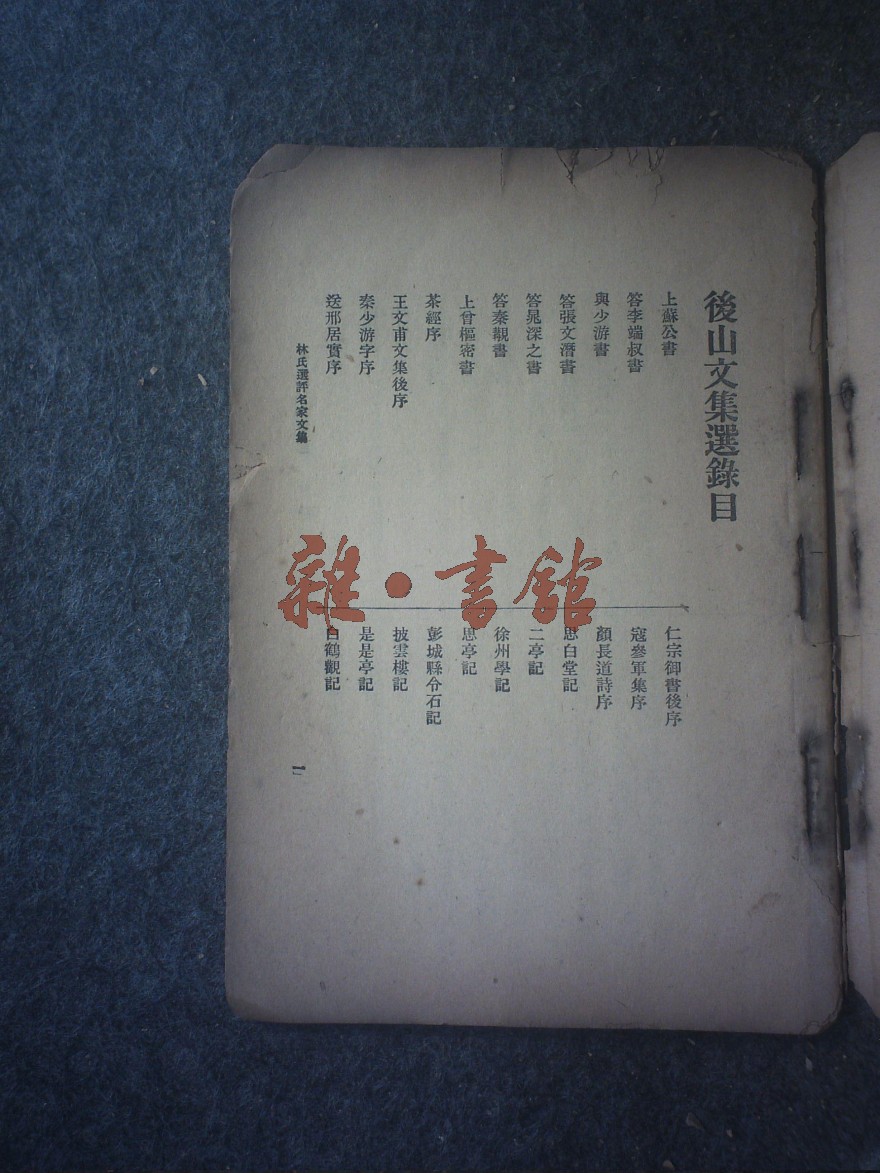 後山文集選錄目
上蘇公書
答李端叔書
與少游書
答張文潛書
答晁深之書
答秦覯書
上曾樞密書
茶經序
王文甫文集後序
秦少游字序
送邢居實序
仁宗御書後序
寇參軍集序
顏長道詩序
思白堂記
二亭記
徐州學記
思亭記
彭城縣令石記
披雲樓記
是是亭記
白鶴觀記
林氏選評名家文集
一
雜·書館